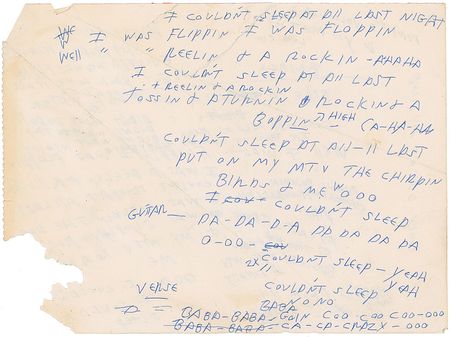 I COULDN'T SLEEP AT All LAST NIGHT
WE I WAS FLIPPIN I WAS FLOPPIN
Well " " REELIN & A ROCKIN - AHAHA
I COULDN'T SLEEP AT All LAST
+ REELIN & A ROCKIN
TOSSING & A TURNIN ROCKING & A
BOPPIN HIGH (A-HA-HA
COULDN'T SLEEP AT All-ll LAST
PUT ON MY MTV THE CHIRPIN
BIRDS & ME W OOO
I COU- COULDN'T SLEEP
GUITAR — DA-DA-D-A DD DA DA DA
O-OO- COU
2X COULDN'T SLEEP - YEAH
" COULDN'T SLEEP YEAH
VERSE NO NO
BABA
D = BABA-BABA-GOIN COO COO COO-OOO
BABA-BABA-CA-CD-CRAZY-OOO